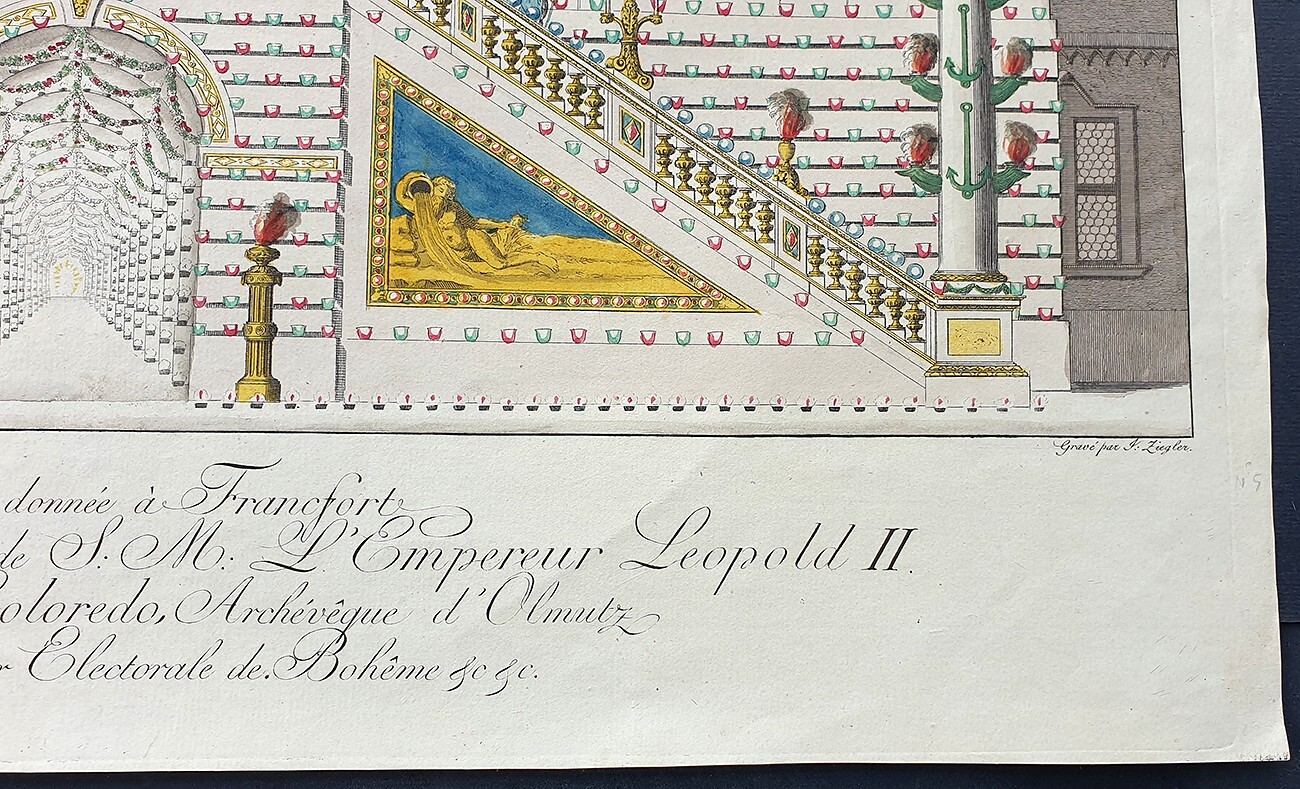 Gravé par J: Ziegler.
donnée à Francfort
de S. M. L'Empereur Leopold II.
Coloredo, Archévêque d'Olmutz
Electorale de Bohême &c &c.